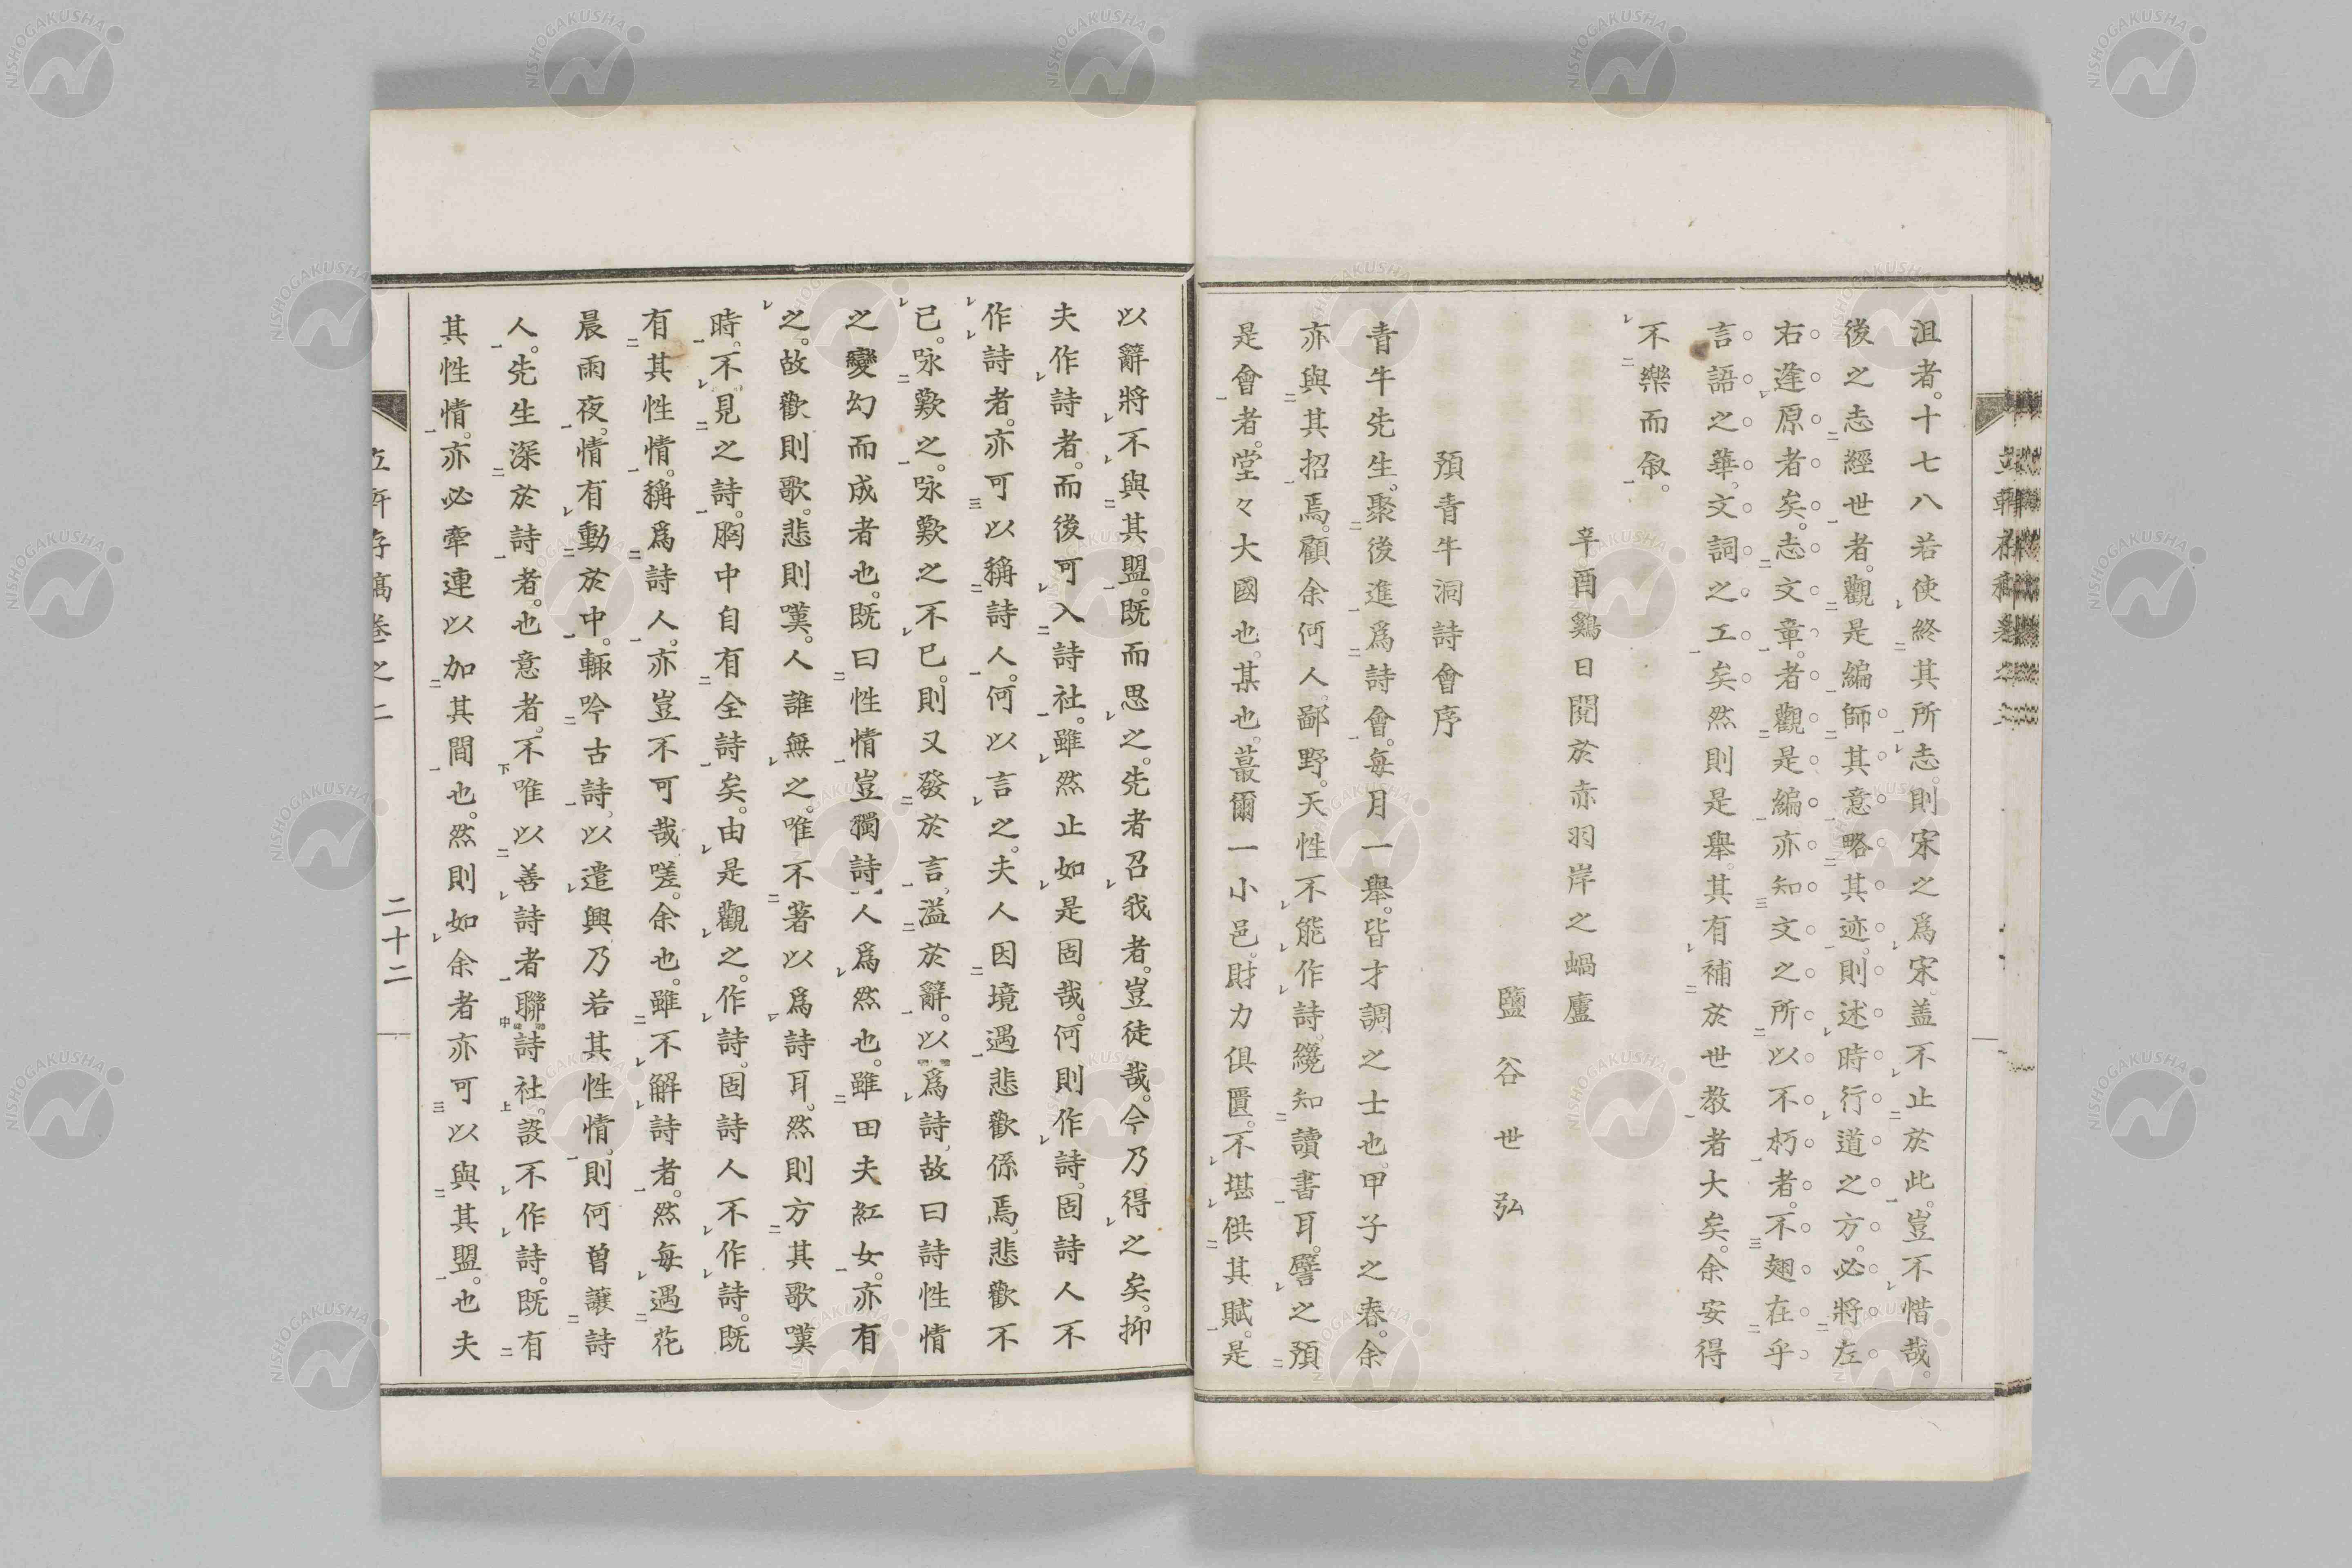 沮者。十七八若使終其所志。則宋之爲宋。盖不止於此。豈不惜哉。
後之志經世者。觀是編。師其意略其迹。則述時行道之方。必將左
右逢原者矣。志文章。者觀是編亦知文之所以不朽者。不翅在乎
言語之華。文詞之工矣。然則是舉。其有補於世教者大矣。余安得
不樂而叙。
辛酉鷄日閱於赤羽岸之蝸廬
鹽谷世弘
預青牛洞詩會序
青牛先生。聚後進爲詩會。每月一舉。皆才調之士也。甲子之春。余
亦與其招焉。顧余何人。鄙野。天性不能作詩。纔知讀書耳。譬之預
是會者。堂々大國也。某也。蕞爾一小邑。財力俱匱。不堪供其賦。是
以辭將不與其盟。既而思之。先者召我者。豈徒哉。今乃得之矣。抑
夫作詩者。而後可入詩社。雖然止如是固哉。何則作詩。固詩人不
作詩者。亦可以稱詩人。何以言之。夫人因境遇悲歡係焉。悲歡不
已。咏歎之。咏歎之不已。則又發於言。溢於辭。以爲詩。故曰詩性情
之變幻而成者也。既曰性情豈獨詩人爲然也。雖田夫紅女。亦有
之。故歡則歌。悲則嘆。人誰無之。唯不著以爲詩耳。然則方其歌嘆
時。不見之詩。胸中自有全詩矣。由是觀之。作詩。固詩人不作詩。既
有其性情。稱爲詩人。亦豈不可哉嗟。余也。雖不解詩者。然每遇花
晨雨夜。情有動於中。輙吟古詩。以遣興乃若其性情。則何曾讓詩
人。先生深於詩者。也意者。不唯以善詩者聯詩社。設不作詩。既有
其性情。亦必牽連以加其間也。然則如余者亦可以與其盟。也夫
二十二